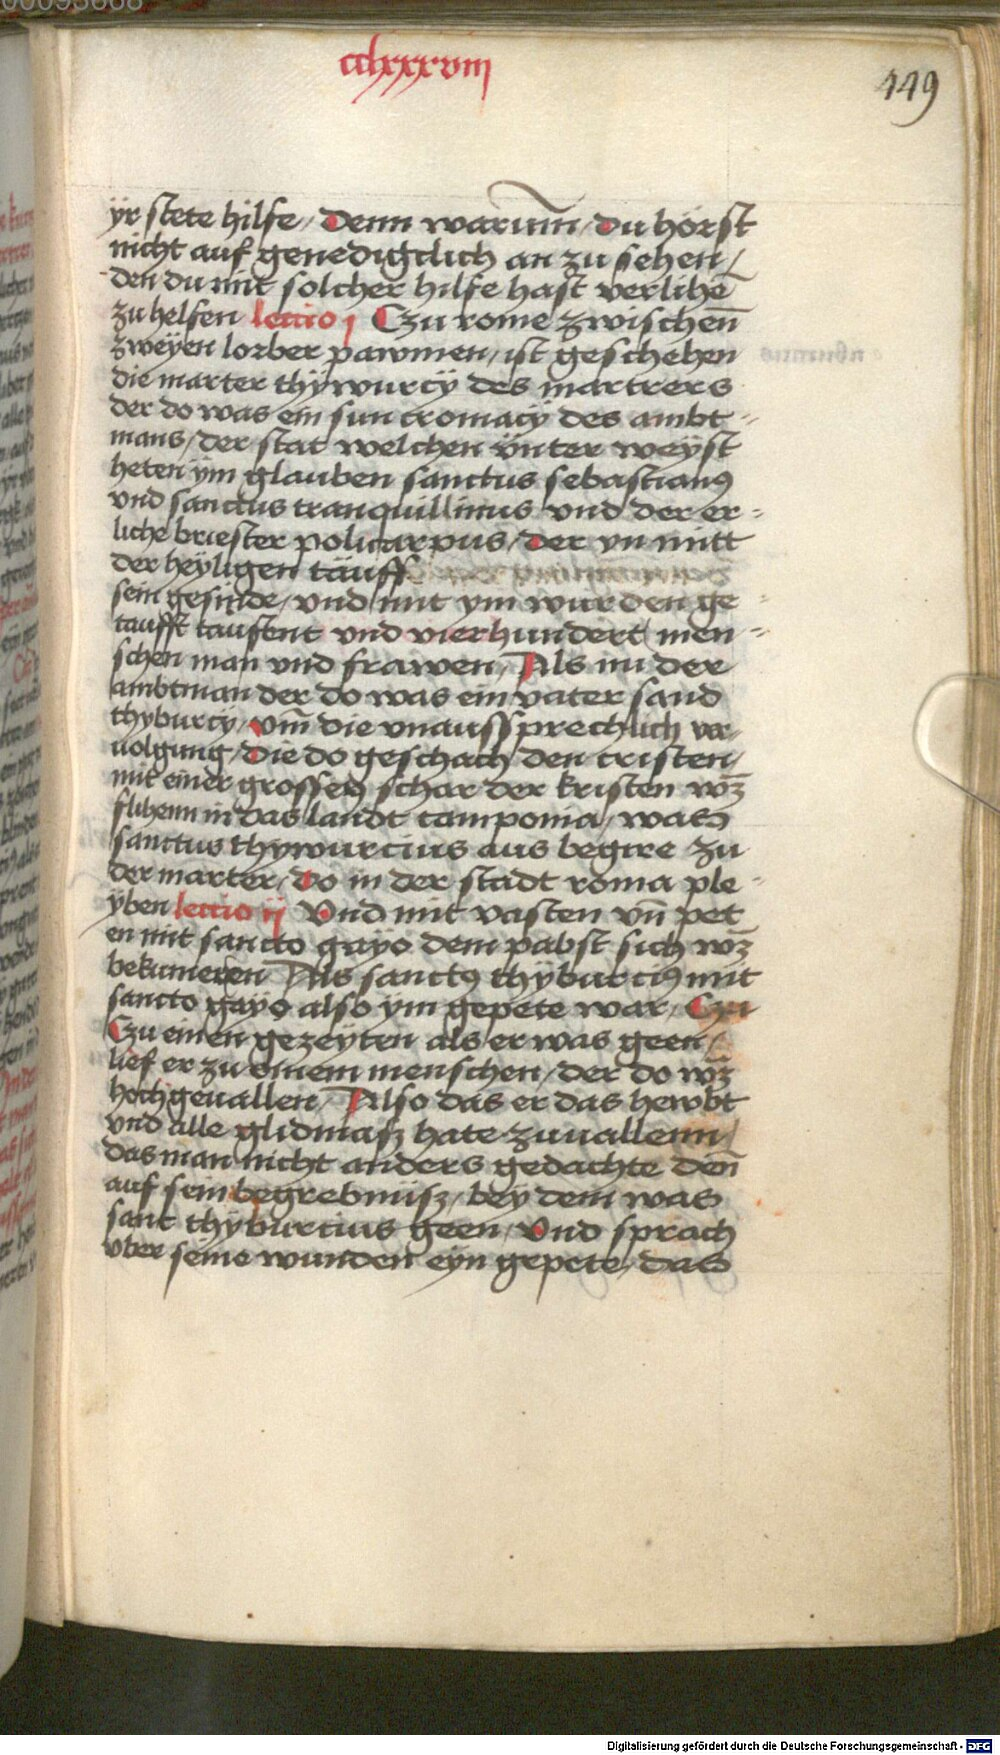 00095668
cclxxxviij
449
ÿr stete hilfe / Denn warum̄ / Du hörst
nicht auf genedigclich an zu sehen /
den du mit solcher hilfe hast verlihē
zu helfen lectio j Czu rome zwischen̄
zweÿen lorber pawmen / ist geschehen
die marter thÿwurcÿ des martrers
der do was ein sun cromacÿ des ambt=
mans / der stat welchen ÿnter weÿst
heten ÿm glauben sanctus sebastianꝰ
vnd sanctus tranquillinus vnd der er=
liche briester policarpus / Der yn mitt
der heÿligen täuff
sein gesinde / vnd mit ym wurden ge=
taufft tausent vnd vierhundert men=
schen man vnd frawen / Als nu der
ambtman der do was ein vater sand
thyburcÿ / vm̄ die vnaussprechlich ver=
uolgung / Die do geschach den cristen /
mit einer grossen schar der kristen wz̄
flihenn in das landt camponia / was
sanctus thywurcius aus begire zu
der marter / Do in der stadt roma ple=
ÿben lectio ij Vnd mit vasten vn̄ pet
en mit sancto gayo dem pabst sich wz̄
bekumeren Als sanctꝰ thÿburciꝰ mit
sancto gaÿo also ym gepete war / Czu
Czu einen gezeÿten als er was geen /
lief er zu einem menschen / der do wz̄
hoch geuallen / Also das er das hewbt
vnd alle glidmasz hate zuuallenn /
das man nicht anders gedachte den̄
auf sein begrebnüsz / beÿ dem was
sant thÿburcius geen / Vnd sprach
vber seine wunden eyn gepete / das
Digitalisierung gefördert durch die Deutsche Forschungsgemeinschaft - DFG